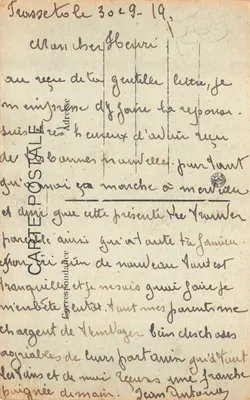 Frasseto le 30 e 9 - 19.
Mon cher Henri
au reçu de ta gentille lettre, je
m'empresse d'y faire la reponse.
suis très heureux d'avoir reçu
de bonnes nouvelles. pour tant
qu'a moi ça marche à merveille
et dire que cette présente te trouver
pareille ainsi qu'a toute ta famille
rien de nouveau tout est
tranquille et je ne sais quoi faire je
m'enbête tout mes parents me
chargent de bien des choses
agréables de leur part ainsi qu'à tout
les tiens et de moi reçois une franche
poignée de main. Jean Antoine
CARTE POSTALE
Correspondance
Adresse